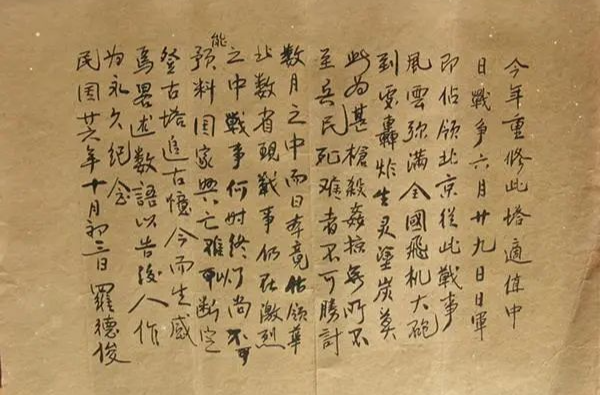 今年重修此塔適值中
日戰争六月廿九日日軍
即佔领北京從此戰事
風雲弥滿全國飛机大砲
到處轟炸生灵塗炭莫
此为甚槍殺姦掠無所不
至兵民死难者不可勝計
数月之中而日本竟佔领華
北数省現戰事仍在激烈
之中戰事何时終了尚不可
能預料国家興亡难以断定
登古塔追古憶今而生感
焉畧述数語以告後人作
为永久纪念
民国廿六年十月初三日羅德俊